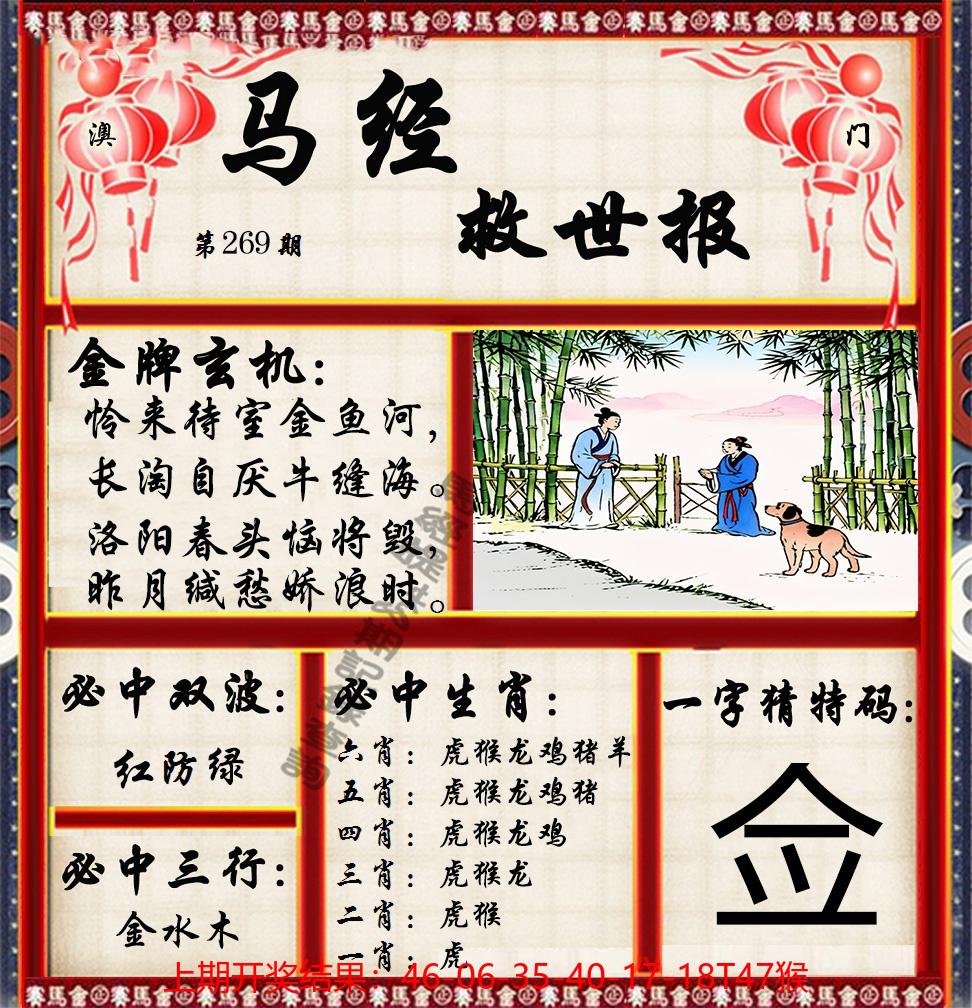 澳
门
马经
救世报
第269期
金牌玄机:
怜来待室金鱼河，
长淘自厌牛缝海。
洛阳春头恼将毁，
昨月缄愁娇浪时。
必中双波:
红防绿
必中三行:
金水木
必中生肖:
六肖：虎猴龙鸡猪羊
五肖：虎猴龙鸡猪
四肖：虎猴龙鸡
三肖：虎猴龙
二肖：虎猴
一肖：虎
一字猜特码:
佥
上期开奖结果：46-06-35-40-17-18T47猴